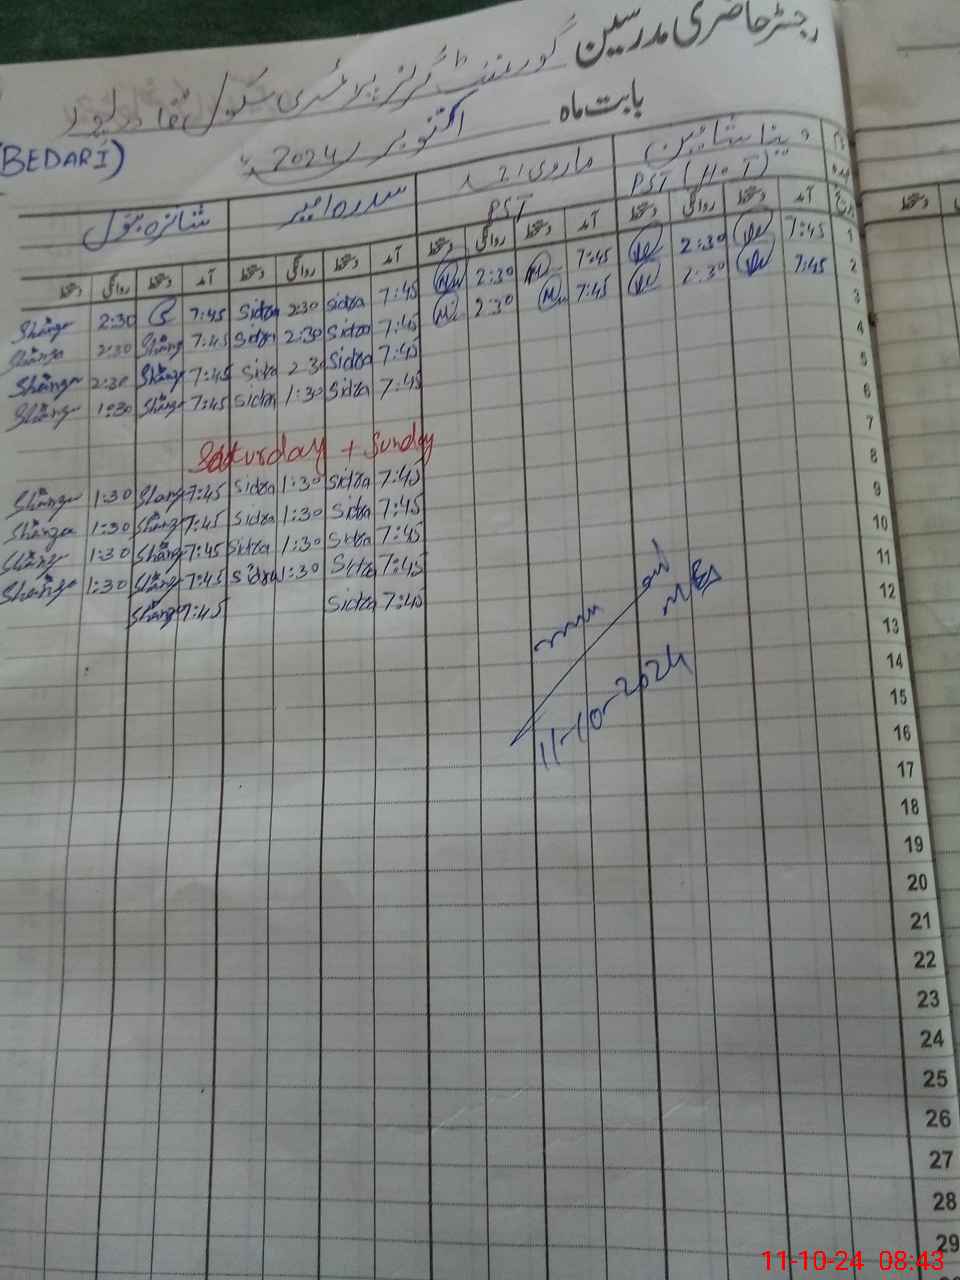 رجسٹر حاضری مدرسین گورنمنٹ گرلز پرائمری سکول
بابت ماہ اکتوبر 2024ء
(BEDARI)
سدرہ امیر
PST (H.T)
PST
آمد دستخط روانگی دستخط آمد دستخط روانگی دستخط آمد دستخط روانگی دستخط آمد دستخط روانگی دستخط
1 7:45 2:30 7:45 2:30 7:45 Sidra 2:30 Sidra 7:45 2:30 Shanza
2 7:45 2:30 7:45 2:30 7:45 Sidra 2:30 Sidra 7:45 Shanza 2:30 Shanza
3 7:45 Sidra 2:30 Sidra 7:45 Shanza 2:30 Shanza
4 7:45 Sidra 1:30 Sidra 7:45 Shanza 1:30 Shanza
5
6 Saturday + Sunday
7 7:45 Sidra 1:30 Sidra 7:45 Shanza 1:30 Shanza
8 7:45 Sidra 1:30 Sidra 7:45 Shanza 1:30 Shanza
9 7:45 Sidra 1:30 Sidra 7:45 Shanza 1:30 Shanza
10 7:45 Sidra 1:30 Sidra 7:45 Shanza 1:30 Shanza
11 7:45 Sidra 7:45 Shanza
12
13
14
11-10-2024
15
16
17
18
19
20
21
22
23
24
25
26
27
28
29
11-10-24 08:43